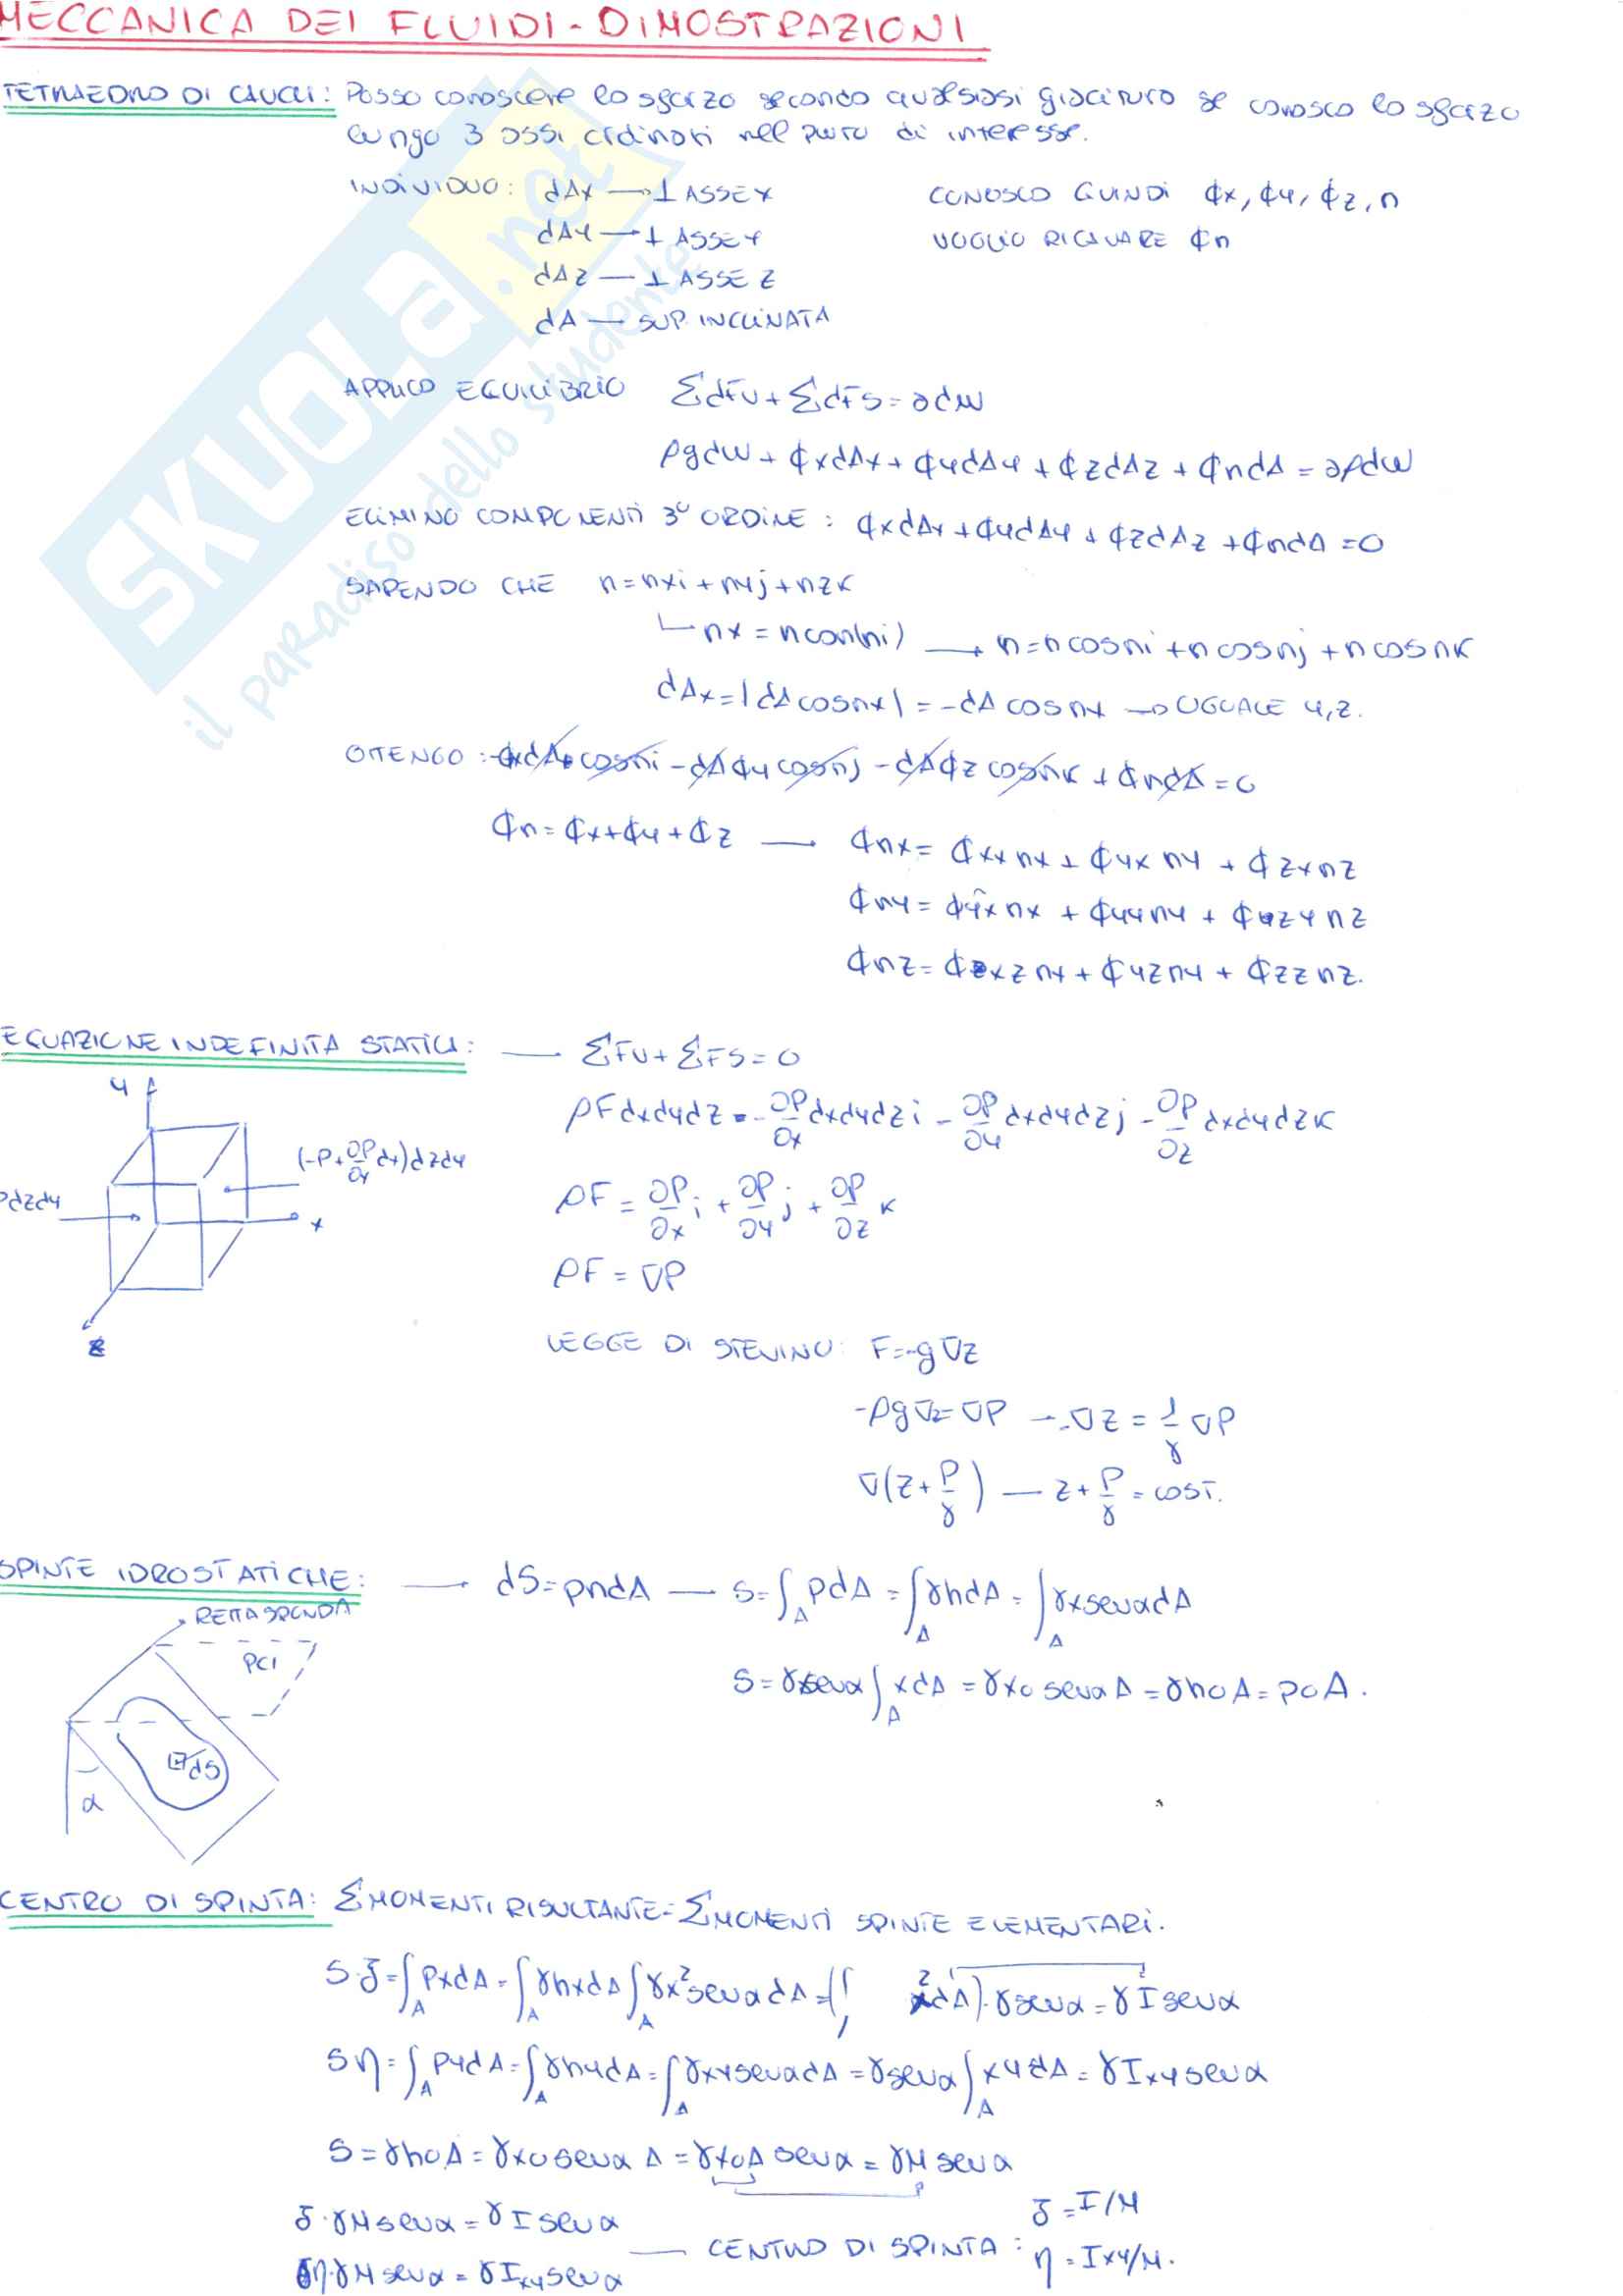 MECCANICA DEI FLUIDI - DIMOSTRAZIONI
TETRAEDRO DI CAUCHI: Posso conoscere lo sforzo secondo qualsiasi giacitura se conosco lo sforzo
lungo 3 assi ordinari nel punto di interesse.
INDIVIDUO: dAx → ⊥ ASSE x
CONOSCO QUINDI ϕx, ϕy, ϕz, n
dAy → ⊥ ASSE y
VOGLIO RICAVARE ϕn
dAz — ⊥ ASSE z
dA — SUP. INCLINATA
APPLICO EQUILIBRIO ΣdFv + ΣdFs = adm
ρgdw + ϕxdAx + ϕydAy + ϕzdAz + ϕndA = aρdw
ELIMINO COMPONENTI 3° ORDINE: ϕxdAx + ϕydAy + ϕzdAz + ϕndA = 0
SAPENDO CHE n = nxi + nyj + nzk
nx = ncos(ni) → n = n cosni + n cosnj + n cosnk
dAx = |dAcosnx| = -dA cosnx → UGUALE y,z.
OTTENGO: -ϕxdA cosni - dAϕy cosnj - dAϕz cosnk + ϕndA = 0
ϕn = ϕx + ϕy + ϕz — ϕnx = ϕxx nx + ϕyx ny + ϕzx nz
ϕny = ϕyx nx + ϕyy ny + ϕzy nz
ϕnz = ϕxz nx + ϕyz ny + ϕzz nz.
EQUAZIONE INDEFINITA STATICA: — ΣFv + ΣFs = 0
y
ρF dxdydz = -∂P/∂x dxdydz i - ∂P/∂y dxdydz j - ∂P/∂z dxdydz k
(-P + ∂P/∂x dx) dzdy
Pdzdy
x
ρF = ∂P/∂x i + ∂P/∂y j + ∂P/∂z k
ρF = ∇P
z
LEGGE DI STEVINO: F = -g∇z
-ρg∇z = ∇P → -∇z = 1/γ ∇P
∇(z + P/γ) — z + P/γ = COST.
SPINTE IDROSTATICHE: — dS = pndA — S = ∫A PdA = ∫A γhdA = ∫A γx senα dA
RETTA SPONDA
PCI
S = γsenα ∫A xdA = γx0 senα A = γh0A = p0A.
dS
α
CENTRO DI SPINTA: ΣMOMENTI RISULTANTE = ΣMOMENTI SPINTE ELEMENTARI.
S·ξ = ∫A PxdA = ∫A γhxdA ∫A γx² senα dA = (∫ x²dA)·γsenα = γ I senα
Sη = ∫A PydA = ∫A γhydA = ∫A γxy senα dA = γsenα ∫A xydA = γIxy senα
S = γh0A = γx0 senα A = γx0A senα = γM senα
ξ·γM senα = γ I senα
ξ = I/M
— CENTRO DI SPINTA:
η·γM senα = γIxy senα
η = Ixy/M.
SKUOLA.net
il paradiso dello studente